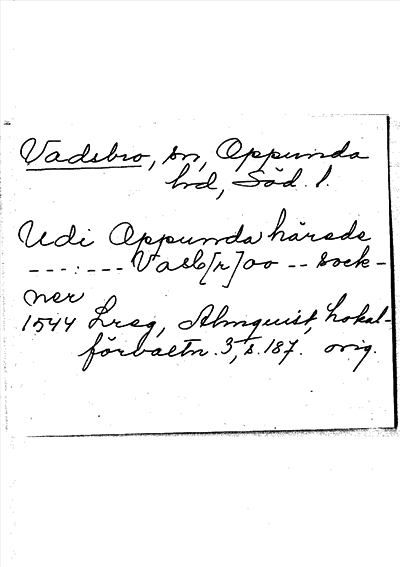 Vadsbro, sn, Oppunda
hd, Söd. l.
Udi Oppunda härede
---:--- Vasb[r]oo -- sock-
ner
1544 Lreg, Almquist, Lokal-
förvaltn. 3, s. 187. orig.